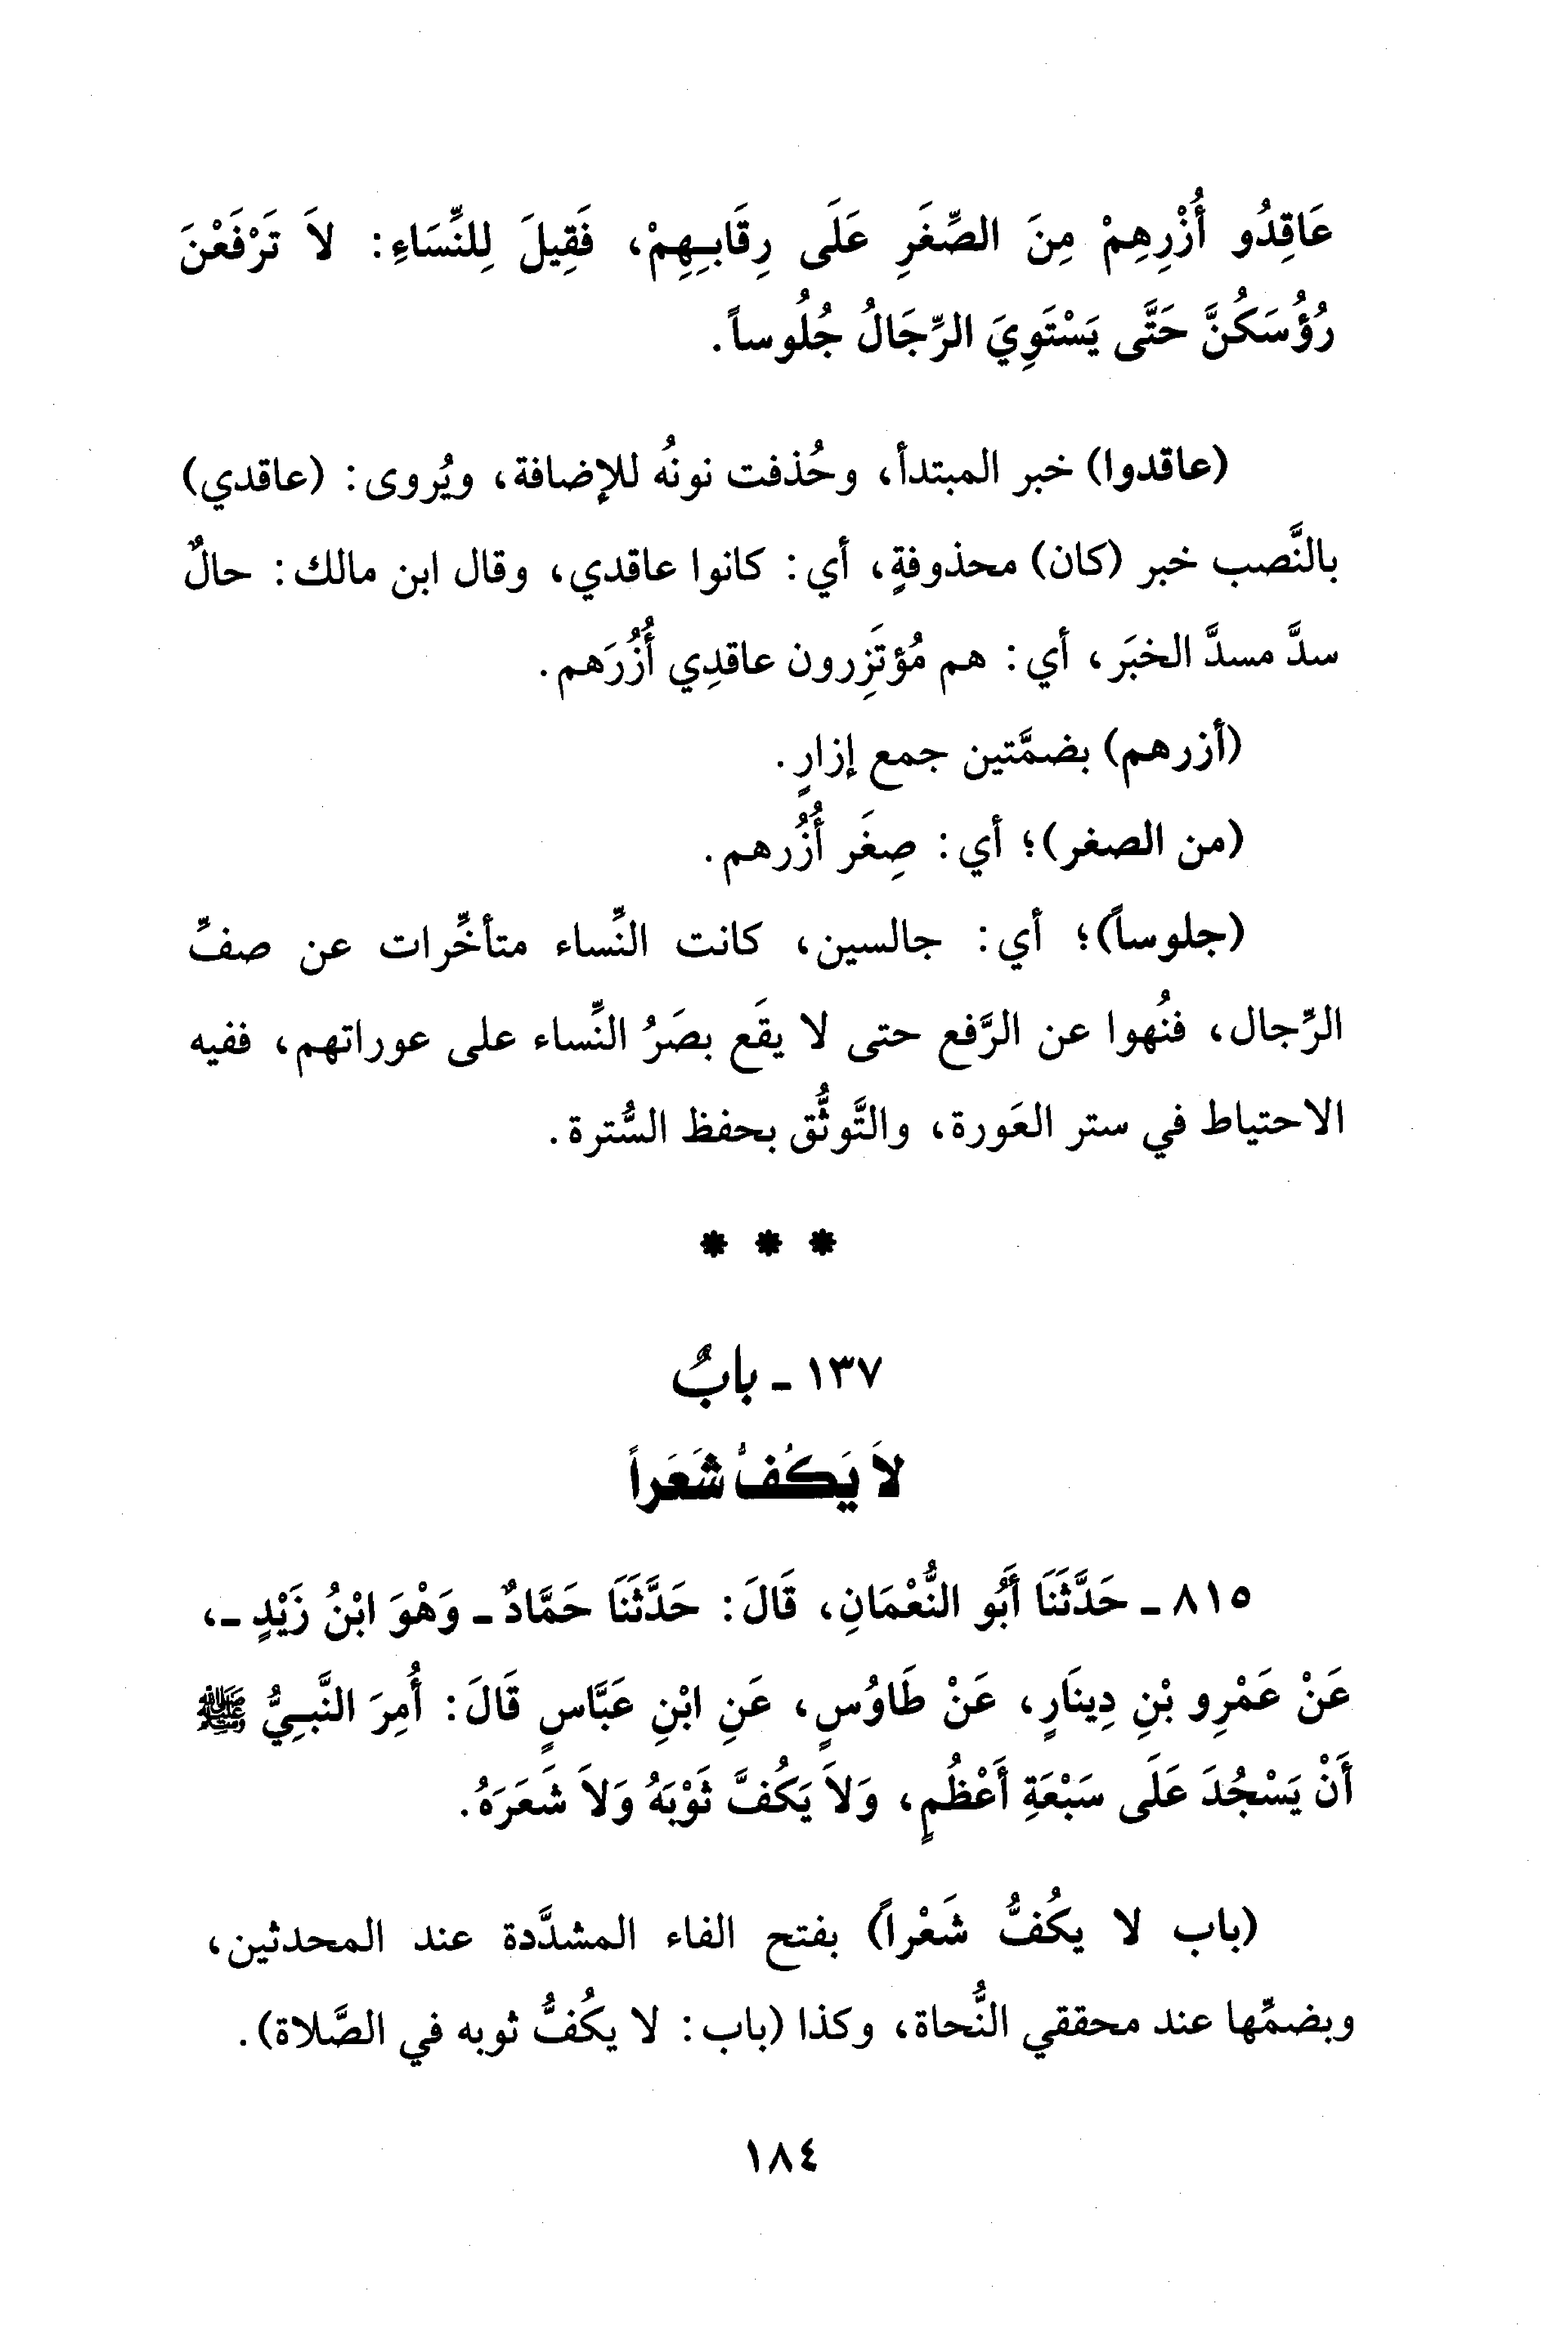 عَاقِدُو أُزْرِهِمْ مِنَ الصِّغَرِ عَلَى رِقَابِهِمْ، فَقِيلَ لِلنِّسَاءِ: لاَ تَرْفَعْنَ
رُؤُسَكُنَّ حَتَّى يَسْتَوِيَ الرِّجَالُ جُلُوساً.
(عاقدوا) خبر المبتدأ، وحُذفت نونُه للإضافة، ويُروى: (عاقدي)
بالنَّصب خبر (كان) محذوفةٍ، أي: كانوا عاقدي، وقال ابن مالك: حالٌ
سدَّ مسدَّ الخبَر، أي: هم مُؤتَزِرون عاقدِي أُزُرَهم.
(أزرهم) بضمَّتين جمع إزارٍ.
(من الصغر)؛ أي: صِغَر أُزُرهم.
(جلوساً)؛ أي: جالسين، كانت النِّساء متأخِّرات عن صفِّ
الرِّجال، فنُهوا عن الرَّفع حتى لا يقَع بصَرُ النِّساء على عوراتهم، ففيه
الاحتياط في ستر العَورة، والتَّوثُّق بحفظ السُّترة.
* * *
١٣٧ - بابٌ
لاَ يَكُفُّ شَعَراً
٨١٥ - حَدَّثَنَا أَبُو النُّعْمَانِ، قَالَ: حَدَّثَنَا حَمَّادٌ - وَهْوَ ابْنُ زَيْدٍ -،
عَنْ عَمْرِو بْنِ دِينَارٍ، عَنْ طَاوُسٍ، عَنِ ابْنِ عَبَّاسٍ قَالَ: أُمِرَ النَّبِيُّ ﷺ
أَنْ يَسْجُدَ عَلَى سَبْعَةِ أَعْظُمٍ، وَلاَ يَكُفَّ ثَوْبَهُ وَلاَ شَعَرَهُ.
(باب لا يكُفُّ شَعْراً) بفتح الفاء المشدَّدة عند المحدثين،
وبضمِّها عند محققي النُّحاة، وكذا (باب: لا يكُفُّ ثوبه في الصَّلاة).
١٨٤